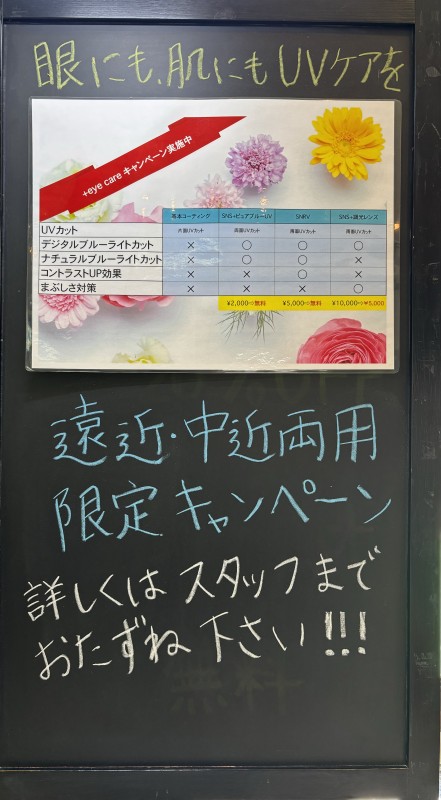 眼にも、肌にもUVケアを
+eye care キャンペーン実施中
基本コーティング SNS+ピュアブルーUV SNRV SNS+調光レンズ
UVカット 片面UVカット 両面UVカット 両面UVカット 両面UVカット
デジタルブルーライトカット × ○ ○ ○
ナチュラルブルーライトカット × ○ ○ ×
コントラストUP効果 × × ○ ×
まぶしさ対策 × × × ○
¥2,000⇨無料 ¥5,000⇨無料 ¥10,000⇨¥5,000
遠近・中近両用
限定キャンペーン
詳しくはスタッフまで
おたずね下さい!!!